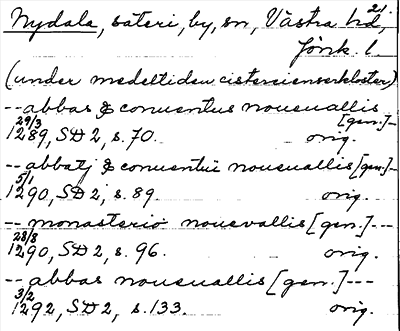 Nydala, säteri, by, sn, Västra hd,
Jönk. l.
(under medeltiden cistercienserkloster)
-- abbas & conuentus noueuallis
29/3 [gen.]--
1289, SD 2, s. 70. orig.
-- abbatj & conuentui noueuallis [gen.]--
5/1
1290, SD 2, s. 89. orig.
-- monasterio nouevallis [gen.] ---
28/8
1290, SD 2, s. 96. orig.
-- abbas noueuallis [gen.] ---
3/2
1292, SD 2, s. 133. orig.